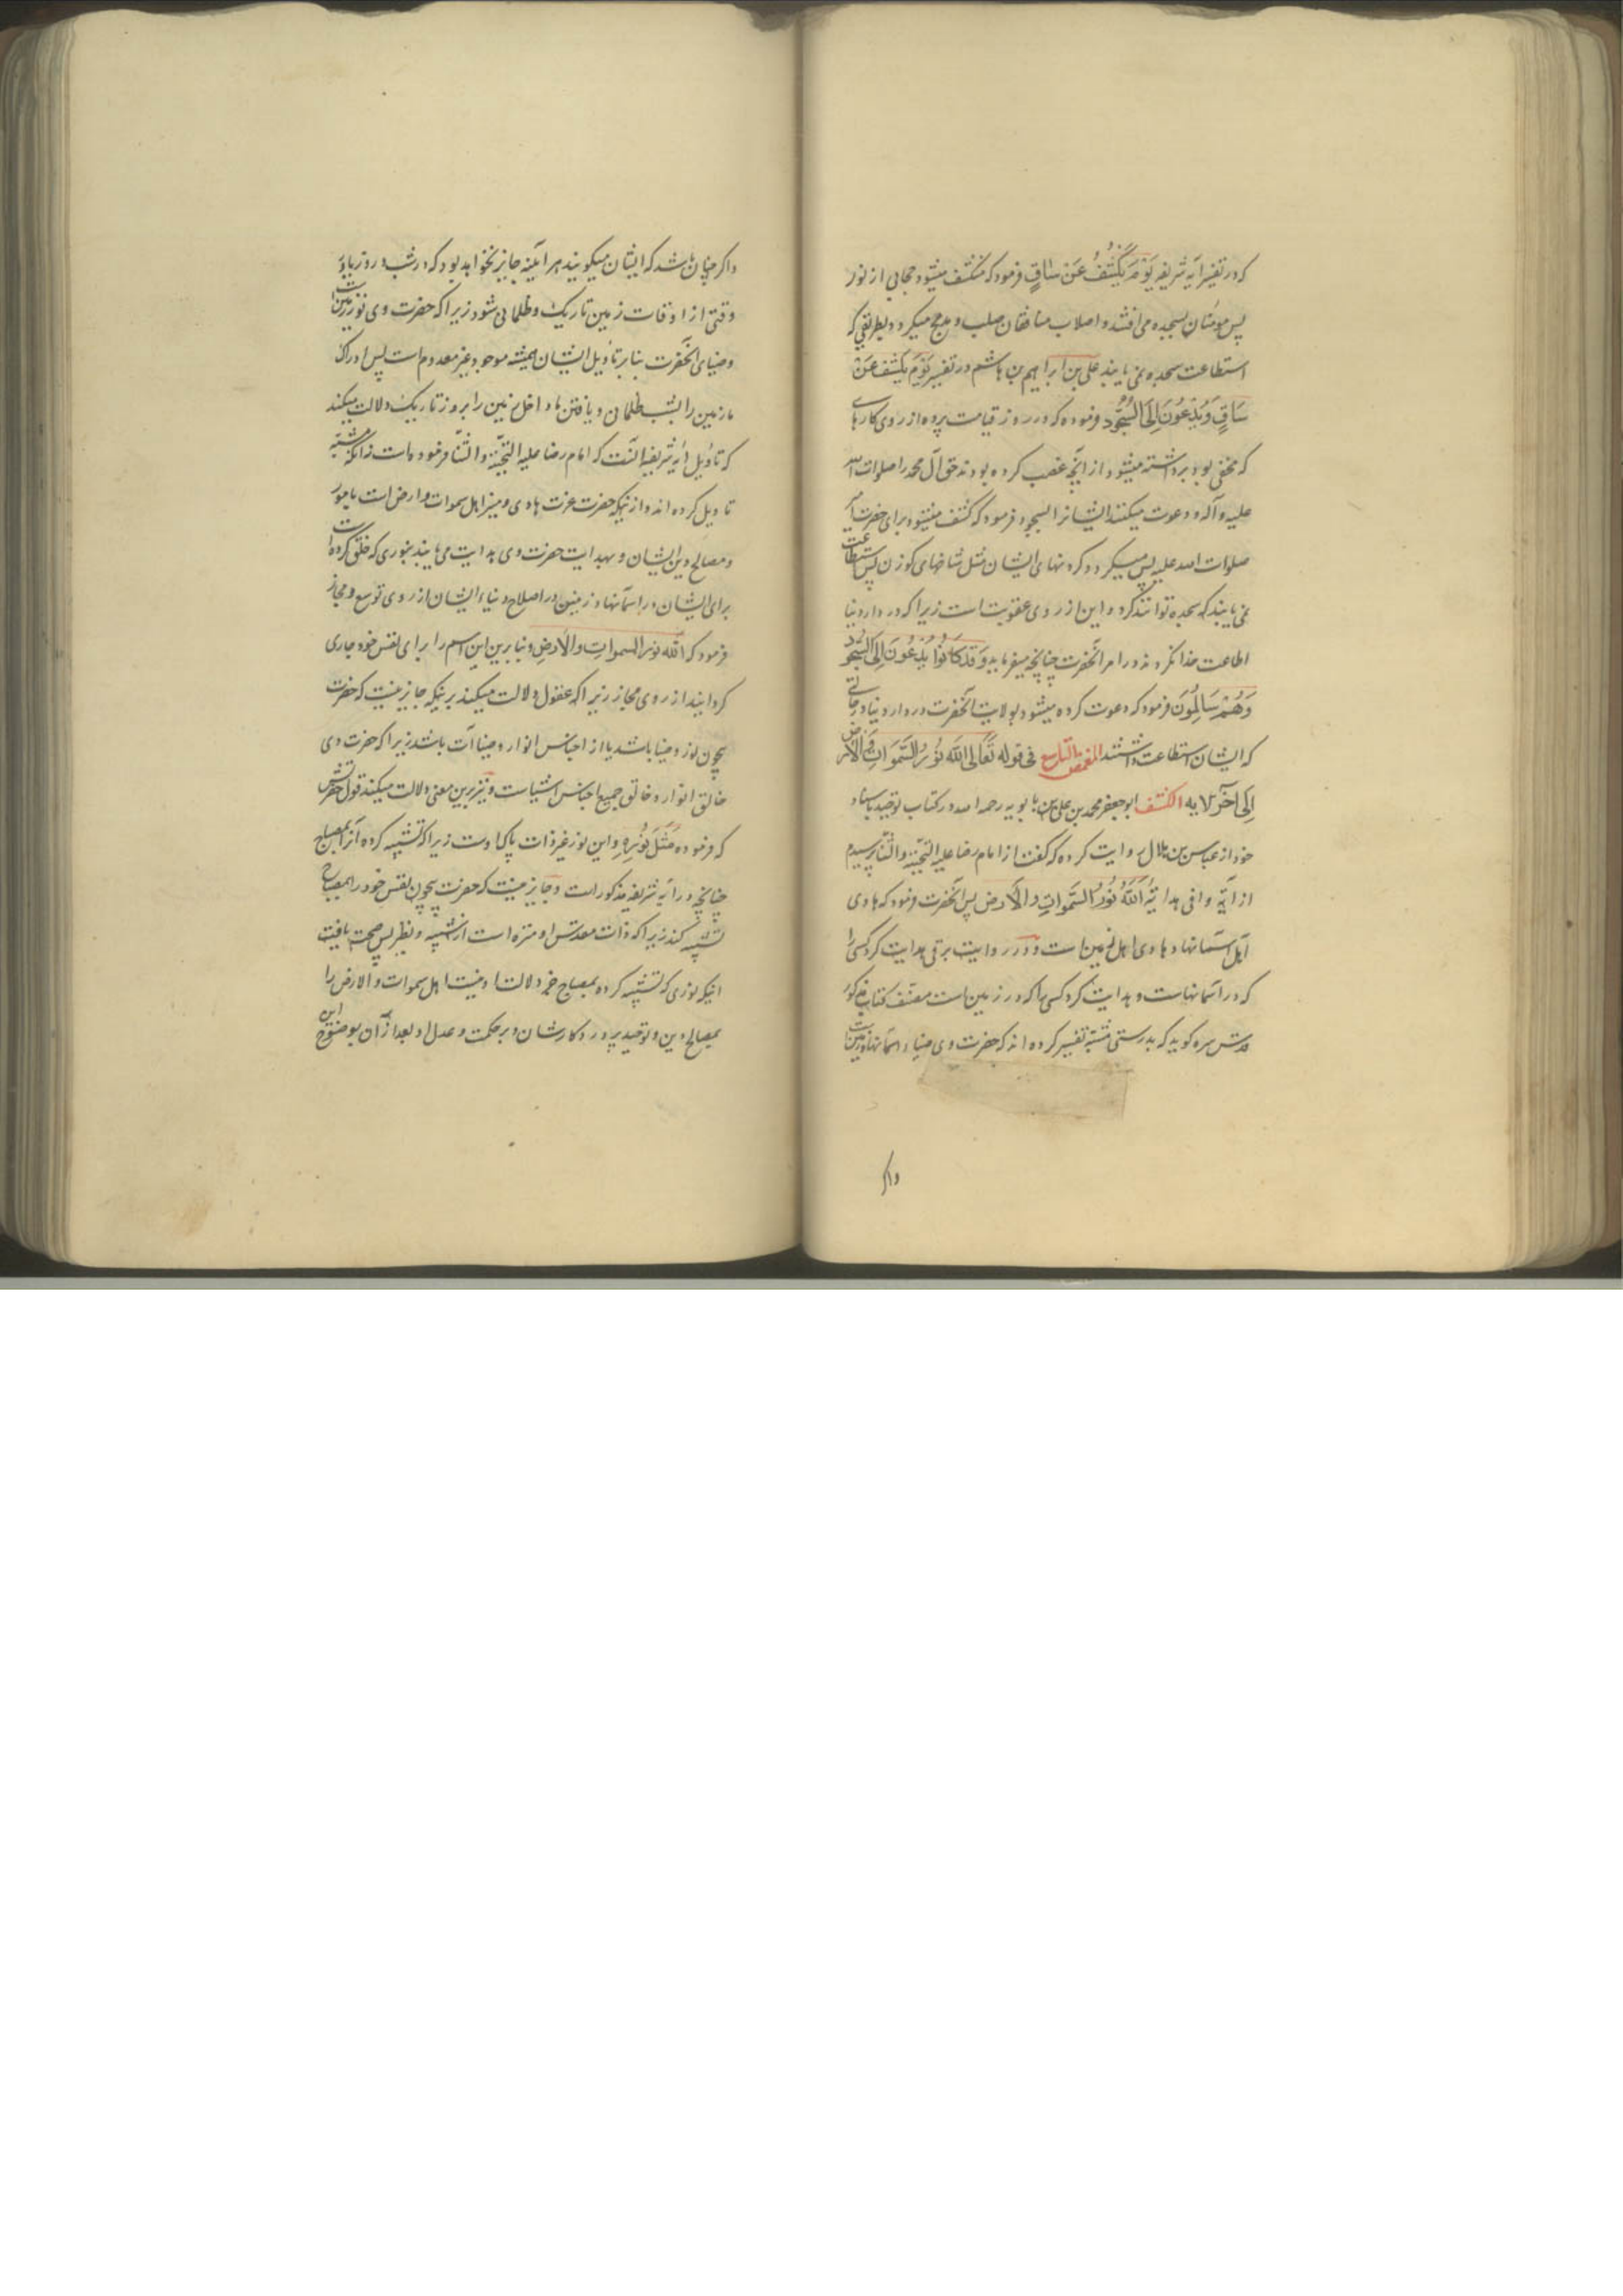 که در تفسیر آیه شریفه یَوْمَ یُکْشَفُ عَنْ سَاقٍ فرمود که منکشف میشود حجابی از نور
پس مومنان بسجده می افتند و اصلاب منافقان صلب و مدمج میکردد بطریقی که
استطاعت سجده نمی یابند علی بن ابراهیم بن هاشم در تفسیر یَوْمَ یُکْشَفُ عَنْ
سَاقٍ وَیُدْعَوْنَ اِلَی السُّجُودِ فرموده که در روز قیامت پرده از روی کارهایی
که مخفی بود برداشته میشود از آنچه غصب کرده بودند حق آل محمد را صلوات الله
علیه و آله و دعوت میکنند ایشانرا بسجود فرمود که کشف میشود برای حضرت امیر
صلوات الله علیه پس میکردد کردنهای ایشان مثل شاخهای کوزن پس استطاعت
نمی یابند که سجده توانند کرد و این از روی عقوبت است زیرا که در دار دنیا
اطاعت خدا نکردند در امر آنحضرت چنانچه میفرماید وَقَدْ کَانُوا یُدْعَوْنَ اِلَی السُّجُودِ
وَهُمْ سَالِمُونَ فرمود که دعوت کرده میشود بولایت آنحضرت در دار دنیا در حالتی
که ایشان استطاعت داشتند المغمض التاسع فی قوله تَعَالَی اللّٰهُ نُورُ السَّمَوَاتِ وَالْاَرْضِ
اِلَی آخر الایه الکشف ابو جعفر محمد بن علی بن بابویه رحمه الله در کتاب توحید باسناد
خود از عباس بن هلال روایت کرده که گفت از امام رضا علیه التحیة و الثنا پرسیدم
از آیه وافی هدایة اَللّٰهُ نُورُ السَّمَوَاتِ وَالْاَرْضِ پس آنحضرت فرمود که هادی
اهل آسمانها و هادی اهل زمین است و در روایت برقی هدایت کرد کسی را
که در آسمانهاست و هدایت کرد کسی را که در زمین است مصنف کتاب مذکور
قدس سره کوید که بدرستی مشبه تفسیر کرده اند که حضرت وی ضیاء آسمانها و زمین است
واکر
واکر چنان باشد که ایشان میکویند هرآینه جایز نخواهد بود که در شب و روز
وقتی از اوقات زمین تاریک و ظلمانی شود زیرا که حضرت وی نور زمین است
و ضیای آنحضرت بنابر تاویل ایشان همیشه موجود و غیر معدوم است پس ادراک
ما زمین را بشب ظلمانی و یافتن ما داخل زمین را بروز تاریک دلالت میکند
که تاویل آیه شریفه آنست که امام رضا علیه التحیة و الثنا فرموده است نه آنکه مشبه
تاویل کرده اند و از نیکه حضرت عزت هادی و مبین اهل سموات و ارض است بامور
و مصالح دین ایشان و بهدایت حضرت وی هدایت می یابند بنوری که خلق کرده است
برای ایشان در آسمانها و زمین در اصلاح دنیاء ایشان از روی توسع و مجاز
فرمود که اَللّٰه نور السموات والاَرضِ و بنابرین این اسم را برای نفس خود جاری
کردانید از روی مجاز زیرا که عقول دلالت میکند برینکه جایز نیست که حضرت
بیچون نور و ضیا باشد یا از اجناس انوار و ضیاآت باشد زیرا که حضرت وی
خالق انوار و خالق جمیع اجناس اشیاست و نیز برین معنی دلالت میکند قول حضرتش
که فرموده مَثَلُ نُورِهِ و این نور غیر ذات پاک اوست زیرا که تشبیه کرده آنرا بمصباح
چنانچه در آیه شریفه مذکور است و جایز نیست که حضرت بیچون نفس خود را بمصباح
تشبیه کند زیرا که ذات مقدس او منزه است از شبیه و نظیر پس صحت یافت
اینکه نوری که تشبیه کرده بمصباح خود دلالت اوست اهل سموات و الارض را
بمصالح دین و توحید پروردکارشان و بر حکمت و عدل او بعد از آن بوضوح این